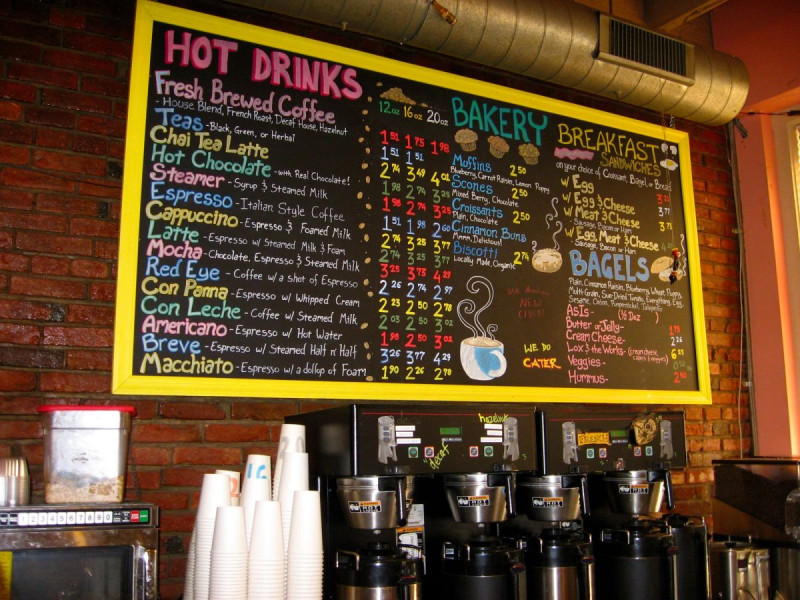 HOT DRINKS
Fresh Brewed Coffee
- House Blend, French Roast, Decaf House, Hazelnut
Teas - Black, Green, or Herbal
Chai Tea Latte
Hot Chocolate - with Real Chocolate!
Steamer - Syrup & Steamed Milk
Espresso - Italian Style Coffee
Cappuccino - Espresso & Foamed Milk
Latte - Espresso w/ Steamed Milk & Foam
Mocha - Chocolate, Espresso & Steamed Milk
Red Eye - Coffee w/ a shot of Espresso
Con Panna - Espresso w/ Whipped Cream
Con Leche - Coffee w/ Steamed Milk
Americano - Espresso w/ Hot Water
Breve - Espresso w/ Steamed Half n' Half
Macchiato - Espresso w/ a dollop of Foam
12oz 16oz 20oz
1.51 1.75 1.98
1.51 1.51
2.74 3.49 4.02
1.98 2.74
1.98 2.74 3.25
1.51 1.98 2.60
2.74 3.25 3.77
2.74 3.25 3.77
3.25 3.73 4.23
2.26 2.74 2.97
2.23 2.50 2.78
2.03 2.50 3.02
1.98 2.50 3.02
3.26 3.77 4.29
1.90 2.26 2.78
BAKERY
Moffins 2.50
Blueberry, Carrot Raisin, Lemon Poppy
Scones 2.50
Mixed Berry, Chocolate
Croissants 2.50
Plain, Chocolate
Cinnamon Buns
Mmm, Delicious!
Biscotti 2.74
Locally Made, Organic
WE DO
CATER
BREAKFAST
SANDWICHES
on your choice of Croissant, Bagel, or Bread
w/ Egg
w/ Egg & Cheese
w/ Meat & Cheese
Sausage, Bacon or Ham
w/ Egg, Meat & Cheese
Sausage, Bacon or Ham
BAGELS
Plain, Cinnamon Raisin, Blueberry, Wheat, Poppy,
Multi-Grain, Sun-Dried Tomato, Everything, Egg,
Sesame, Onion, Pumpernickel, Jalapeño
As Is - (½ Doz )
Butter or Jelly - 1.75
Cream Cheese - 2.26
Lox & the Works - (cream cheese, capers & veggies) 6.23
Veggies -
Hummus -
hazelnut
decaf
16
1 2 3 4 5 6 7 8 9 0